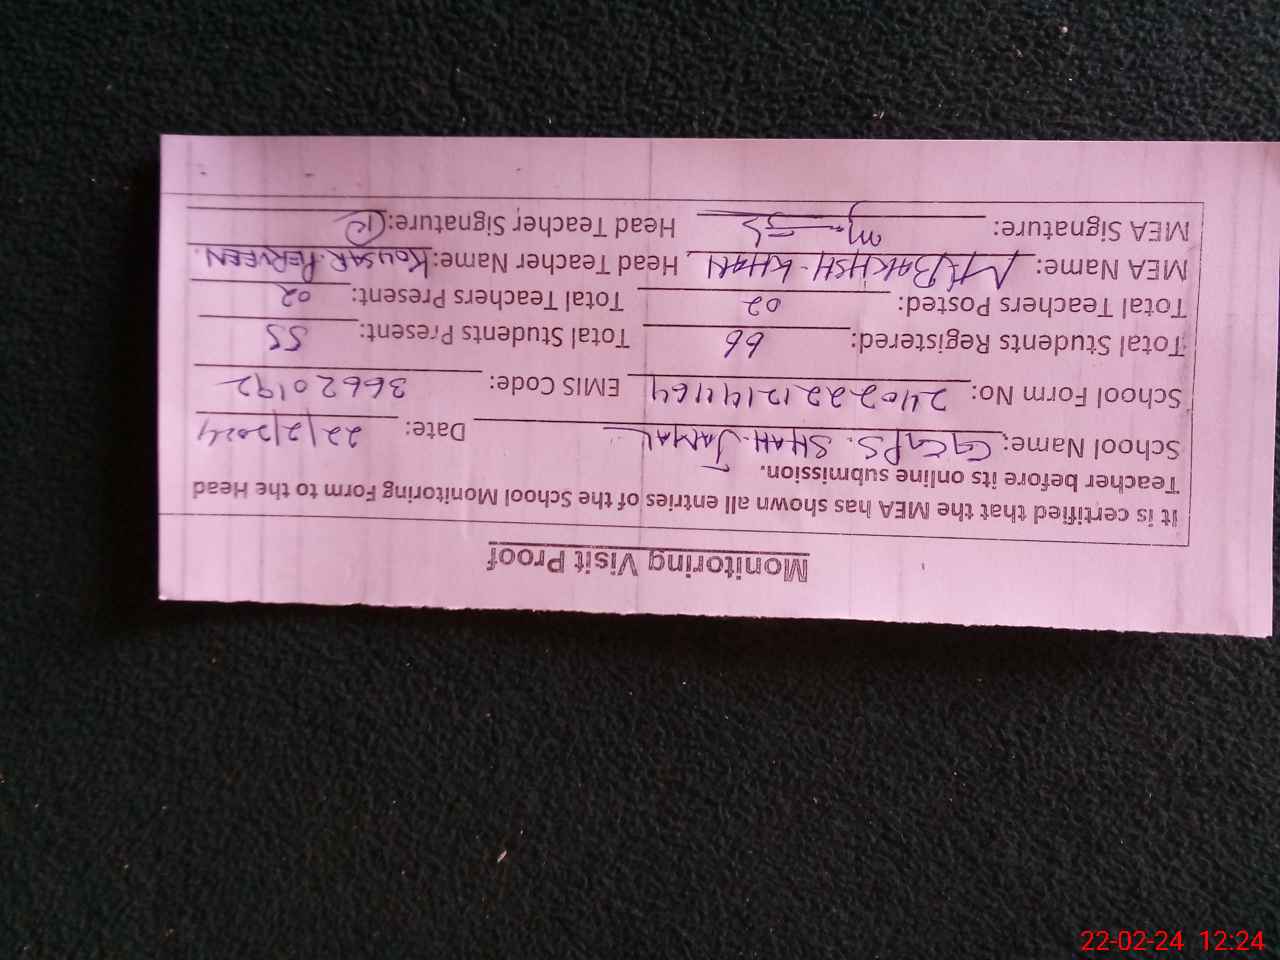 Monitoring Visit Proof
It is certified that the MEA has shown all entries of the School Monitoring Form to the Head
Teacher before its online submission.
School Name: GGPS. SHAH. JAMAL Date: 22/2/2024
School Form No: EMIS Code: 36620192
Total Students Registered: 66 Total Students Present: 55
Total Teachers Posted: 02 Total Teachers Present: 02
MEA Name: M. BAKHSH. KHAN Head Teacher Name: KOUSAR. PERVEEN.
MEA Signature: Head Teacher Signature:
22-02-24 12:24